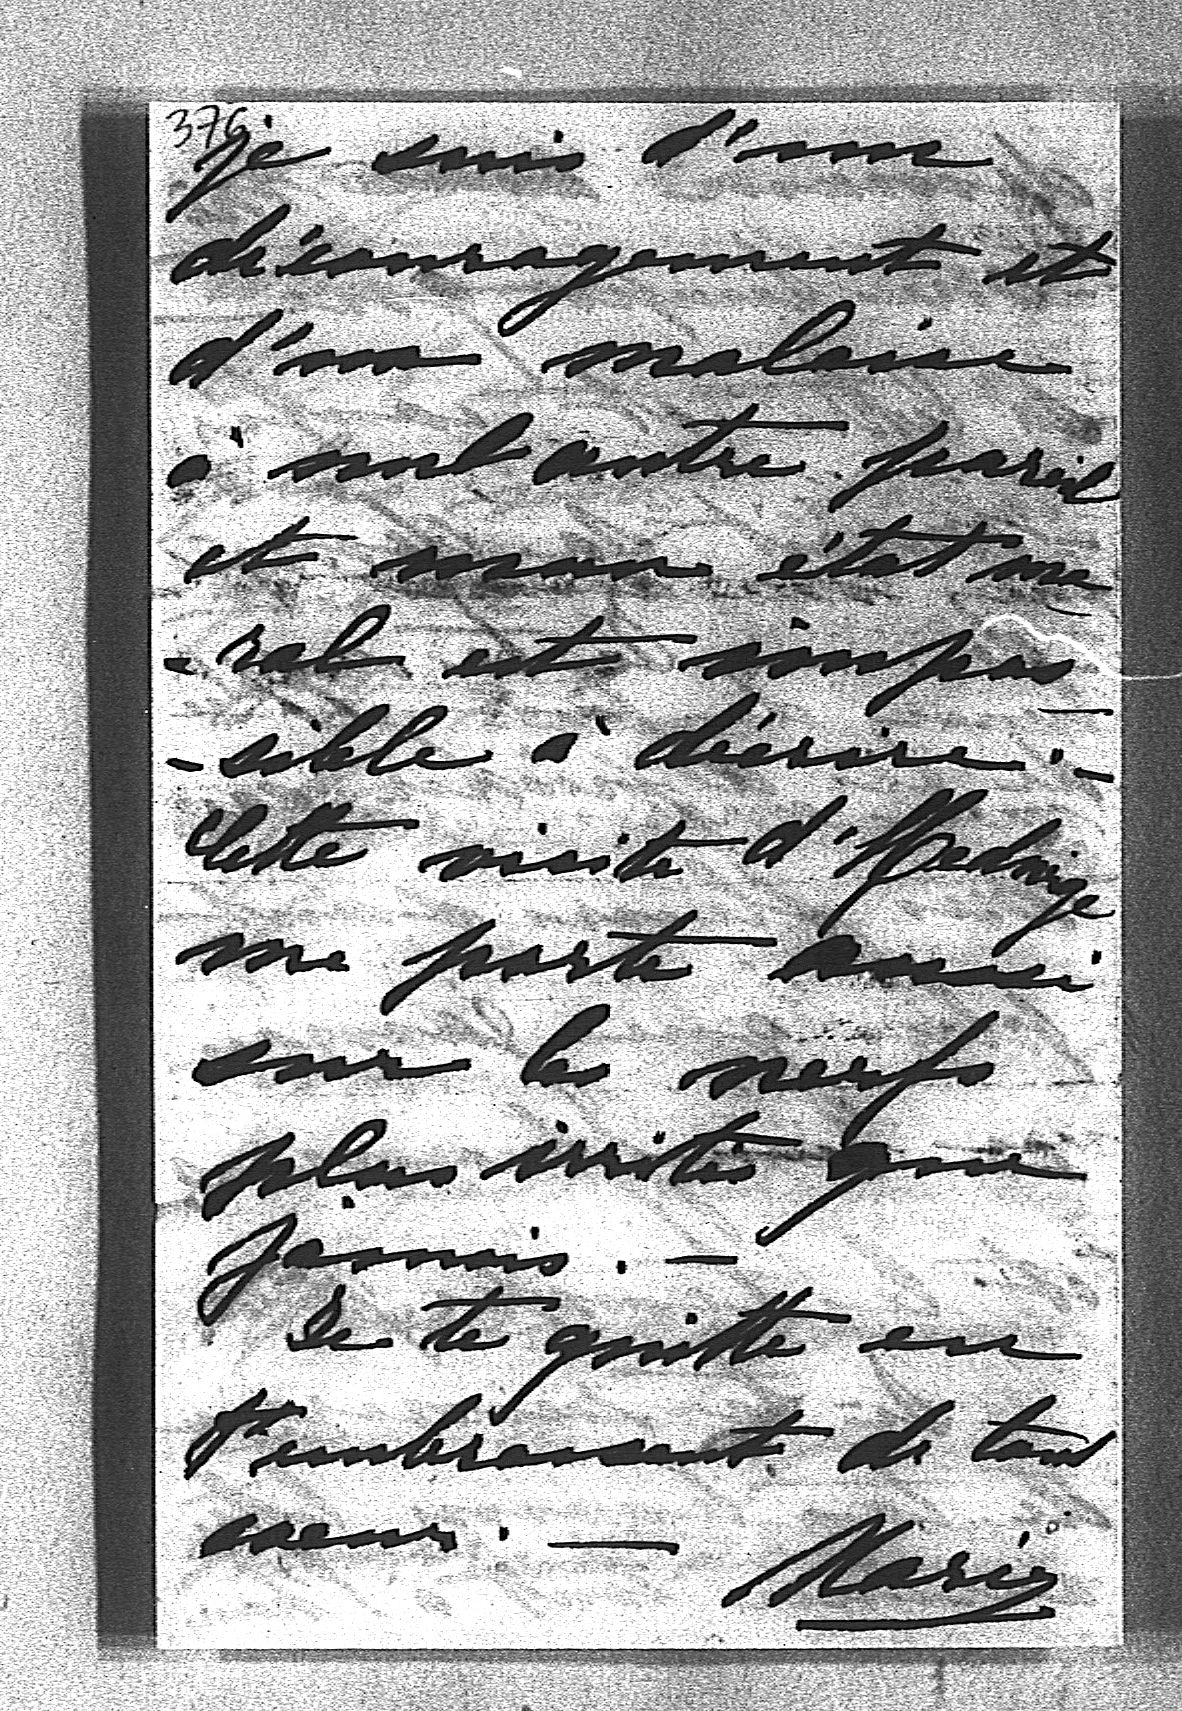 376
je suis d'un
découragement et
d'un malaise
à nul autre pareil
et mon état mo
-ral est impos
-sible à décrire. -
Cette visite d'Hedwige
me porte aussi
sur les nerfs
plus irrités que
jamais. —
Je te quitte en
t'embrassant de tout
coeur. —
Marie